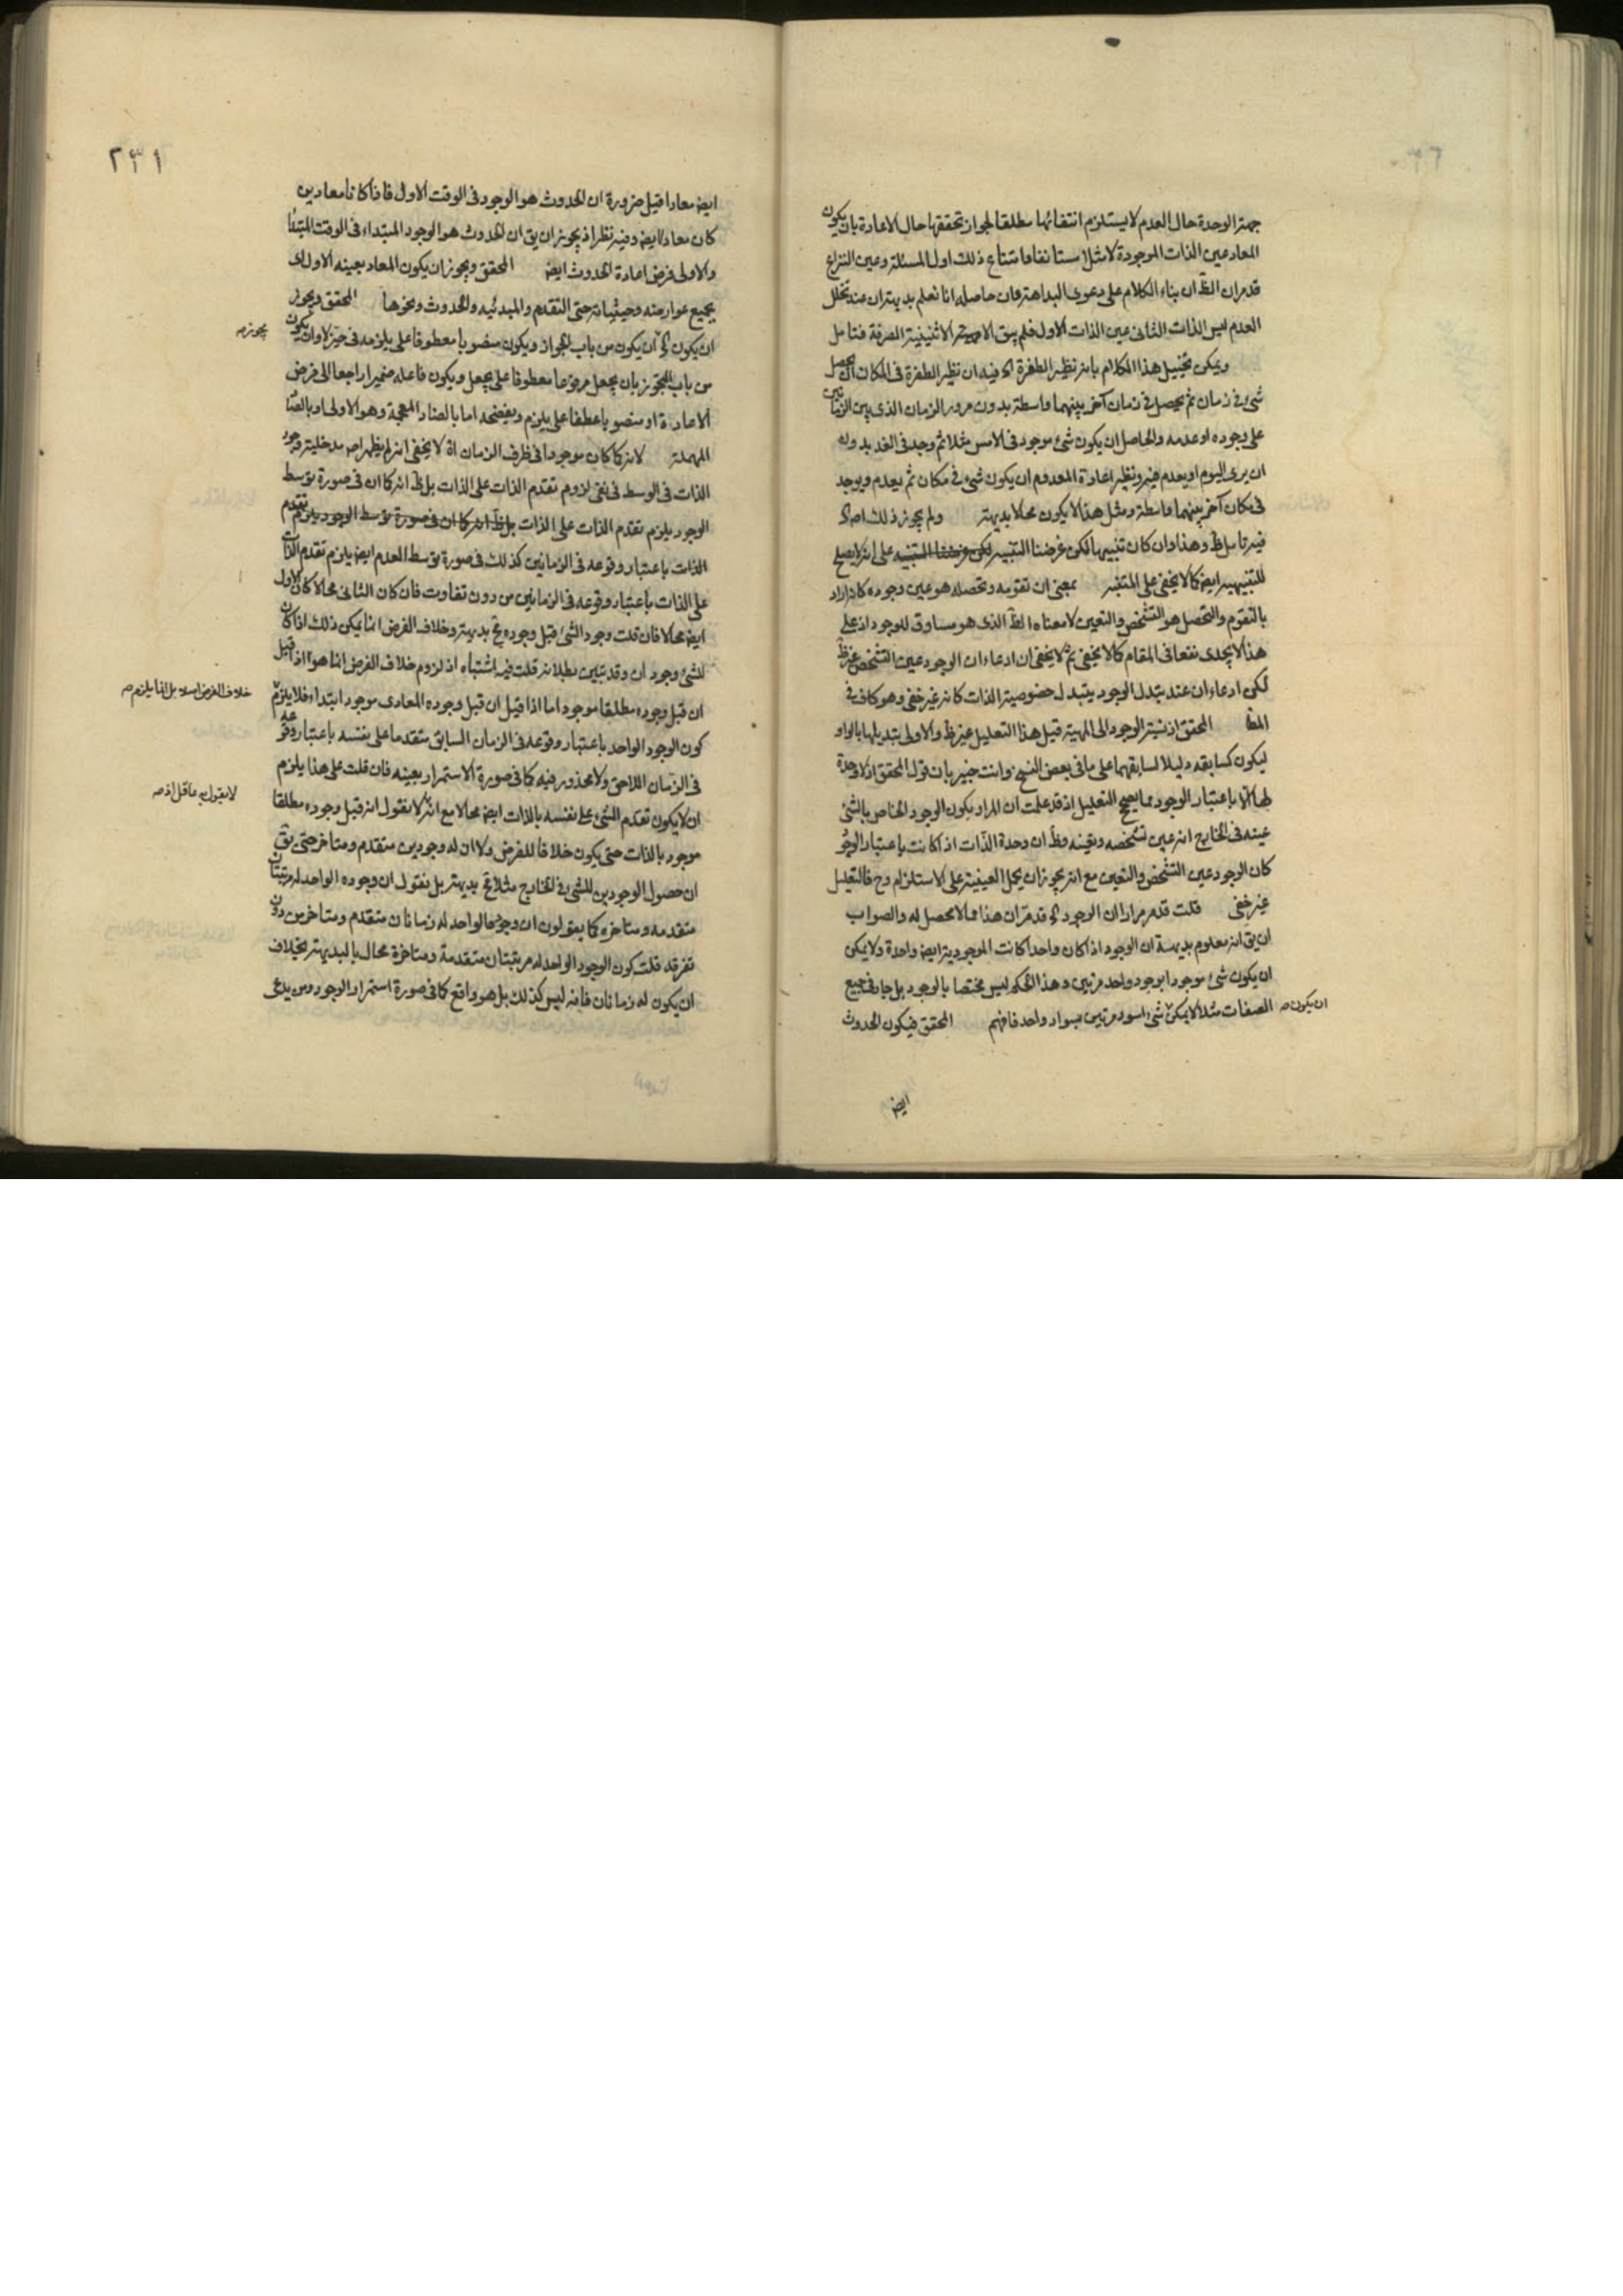 جهة الوحدة حال العدم لا يستلزم انتفائها مطلقا لجواز تحققها حال الاعادة بان يكون
المعاد عين الذات الموجودة لا مثل مستانفا فامتناع ذلك اول المسئلة وعين النزاع
قد مر ان الظ ان بناء الكلام على دعوى البداهة فان حاصله انا نعلم بديهة ان عند تخلل
العدم ليس الذات الثانى عين الذات الاول فلم يبق الا الاثنينية الصرفة فتامل
ويمكن تخييل هذا الكلام بانه نظير الطفرة اه فيه ان نظير الطفرة فى المكان ان يحصل
شئ فى زمان ثم يحصل فى زمان آخر بينهما واسطة بدون مرور الزمان الذى بين الزمانين
على وجوده او عدمه والحاصل ان يكون شئ موجود فى الامس مثلا ثم وجد فى الغد بدون
ان يرى اليوم او يعدم فيه ونظير اعادة المعدوم ان يكون شئ فى مكان ثم يعدم ويوجد
فى مكان آخر بينهما واسطة ومثل هذا لا يكون محالا بديهة ولم يجوز ذلك اه
فيه تامل ظ وهذا وان كان تنبيها لكن غرضنا التنبيه على انه لا يصلح
للتنبيه ايض كما لا يخفى على المتنبه بمعنى ان تقومه وتحصله هو عين وجوده كانه اراد
بالتقوم والتحصل هو التشخص والتعين لا معناه الظ الذى هو مساوق للوجود اذ على
هذا لا يجدى نفعا فى المقام كما لا يخفى ثم لا يخفى ان ادعاء ان الوجود عين التشخص غير ظ
لكن ادعاء ان عند تبدل الوجود يتبدل خصوصية الذات كانه غير خفى وهو كاف فى
المط المحقق اذ نسبة الوجود الى المهية قيل هذا التعليل غير ظ والاولى تبديلها بالواو
ليكون كسابقه دليلا لسابقهما على ما فى بعض النسخ وانت خبير بان قول المحقق اذ لا وحدة
لها الا باعتبار الوجود مما يصحح التعليل اذ قد علمت ان المراد بكون الوجود الخاص بالشئ
عينه فى الخارج انه عين تشخصه وتعينه وظ ان وحدة الذات اذا كانت باعتبار الوجود
كان الوجود عين التشخص والتعين مع انه يجوز ان يحمل العينية على الاستلزام وح فالتعليل
غير خفى قلت قد مر مرارا ان الوجود اه قد مر ان هذا مما لا محصل له والصواب
ان يق انه معلوم بديهة ان الوجود اذا كان واحدا كانت الموجودية ايض واحدة ولا يمكن
ان يكون شئ موجودا بوجود واحد مرتين وهذا الحكم ليس مختصا بالوجود بل جار فى جميع
الصفات مثلا لا يمكن شئ اسود مرتين بسواد واحد فافهم المحقق فيكون الحدوث
ان يكون صه
ايض
٢٣١
ايض معادا قيل ضرورة ان الحدوث هو الوجود فى الوقت الاول فاذا كانا معادين
كان معادا ايض وفيه نظر اذ يجوز ان يق ان الحدوث هو الوجود المبتداء فى الوقت المبتداء
والاولى فرض اعادة الحدوث ايض المحقق ويجوز ان يكون المعاد بعينه الاول اى
بجميع عوارضه وحيثياته حتى التقدم والمبدئيه والحدوث ونحوها المحقق ويجوز
ان يكون اه ان يكون من باب الجواز ويكون منصوبا معطوفا على يلزمه فى حيز لا وان يكون
يجوز صه
من باب التجويز بان يجعل مرفوعا معطوفا على يجعل ويكون فاعله ضميرا راجعا الى فرض
الاعادة او منصوبا عطفا على يلزم ويفضحه اما بالضاد المعجمة وهو الاولى او بالصاد
المهملة لانه كما كان موجودا فى ظرف الزمان اذ لا يخفى انه لم يظهر اه مدخلية وجود
الذات فى الوسط فى نفى لزوم تقدم الذات على الذات بل ظ انه كما ان فى صورة توسط
الوجود يلزم تقدم الذات على الذات بل ظ انه كما ان فى صورة توسط الوجود يلزم تقدم
الذات باعتبار وقوعه فى الزمانين كذلك فى صورة توسط العدم ايض يلزم تقدم الذات
على الذات باعتبار وقوعه فى الزمانين من دون تفاوت فان كان الثانى محالا كان الاول
ايض محالا فان قلت وجود الشئ قبل وجوده مح بديهة وخلاف الفرض انما يمكن ذلك اذا كان
للشئ وجودان وقد تبين بطلانه قلت فيه اشتباه اذ لزوم خلاف الفرض انما هو اذا قيل
ان قبل وجوده مطلقا موجود اما اذا قيل ان قبل وجوده المعادى موجود ابتداء فلا يلزم
خلاف الفرض اصلا بل انما يلزم صه
كون الوجود الواحد باعتبار وقوعه فى الزمان السابق متقدما على نفسه باعتبار وقوعه
فى الزمان اللاحق ولا محذور فيه كما فى صورة الاستمرار بعينه فان قلت على هذا يلزم
ان لا يكون تقدم الشئ على نفسه بالذات ايض محالا مع انه لا نقول انه قبل وجوده مطلقا
لا يقول به عاقل اذ صه
موجود بالذات حتى يكون خلافا للفرض ولا ان له وجودين متقدم ومتاخر حتى يق
ان حصول الوجودين للشئ فى الخارج مثلا مح بديهة بل نقول ان وجوده الواحد له مرتبتان
متقدمه ومتاخره كما يقولون ان وجودها الواحد له زمانان متقدم ومتاخر من دون
تفرقه قلت كون الوجود الواحد له مرتبتان متقدمة ومتاخرة محال بالبديهة بخلاف
ان يكون له زمانان فانه ليس كذلك بل هو واقع كما فى صورة استمرار الوجود ومن يدعى